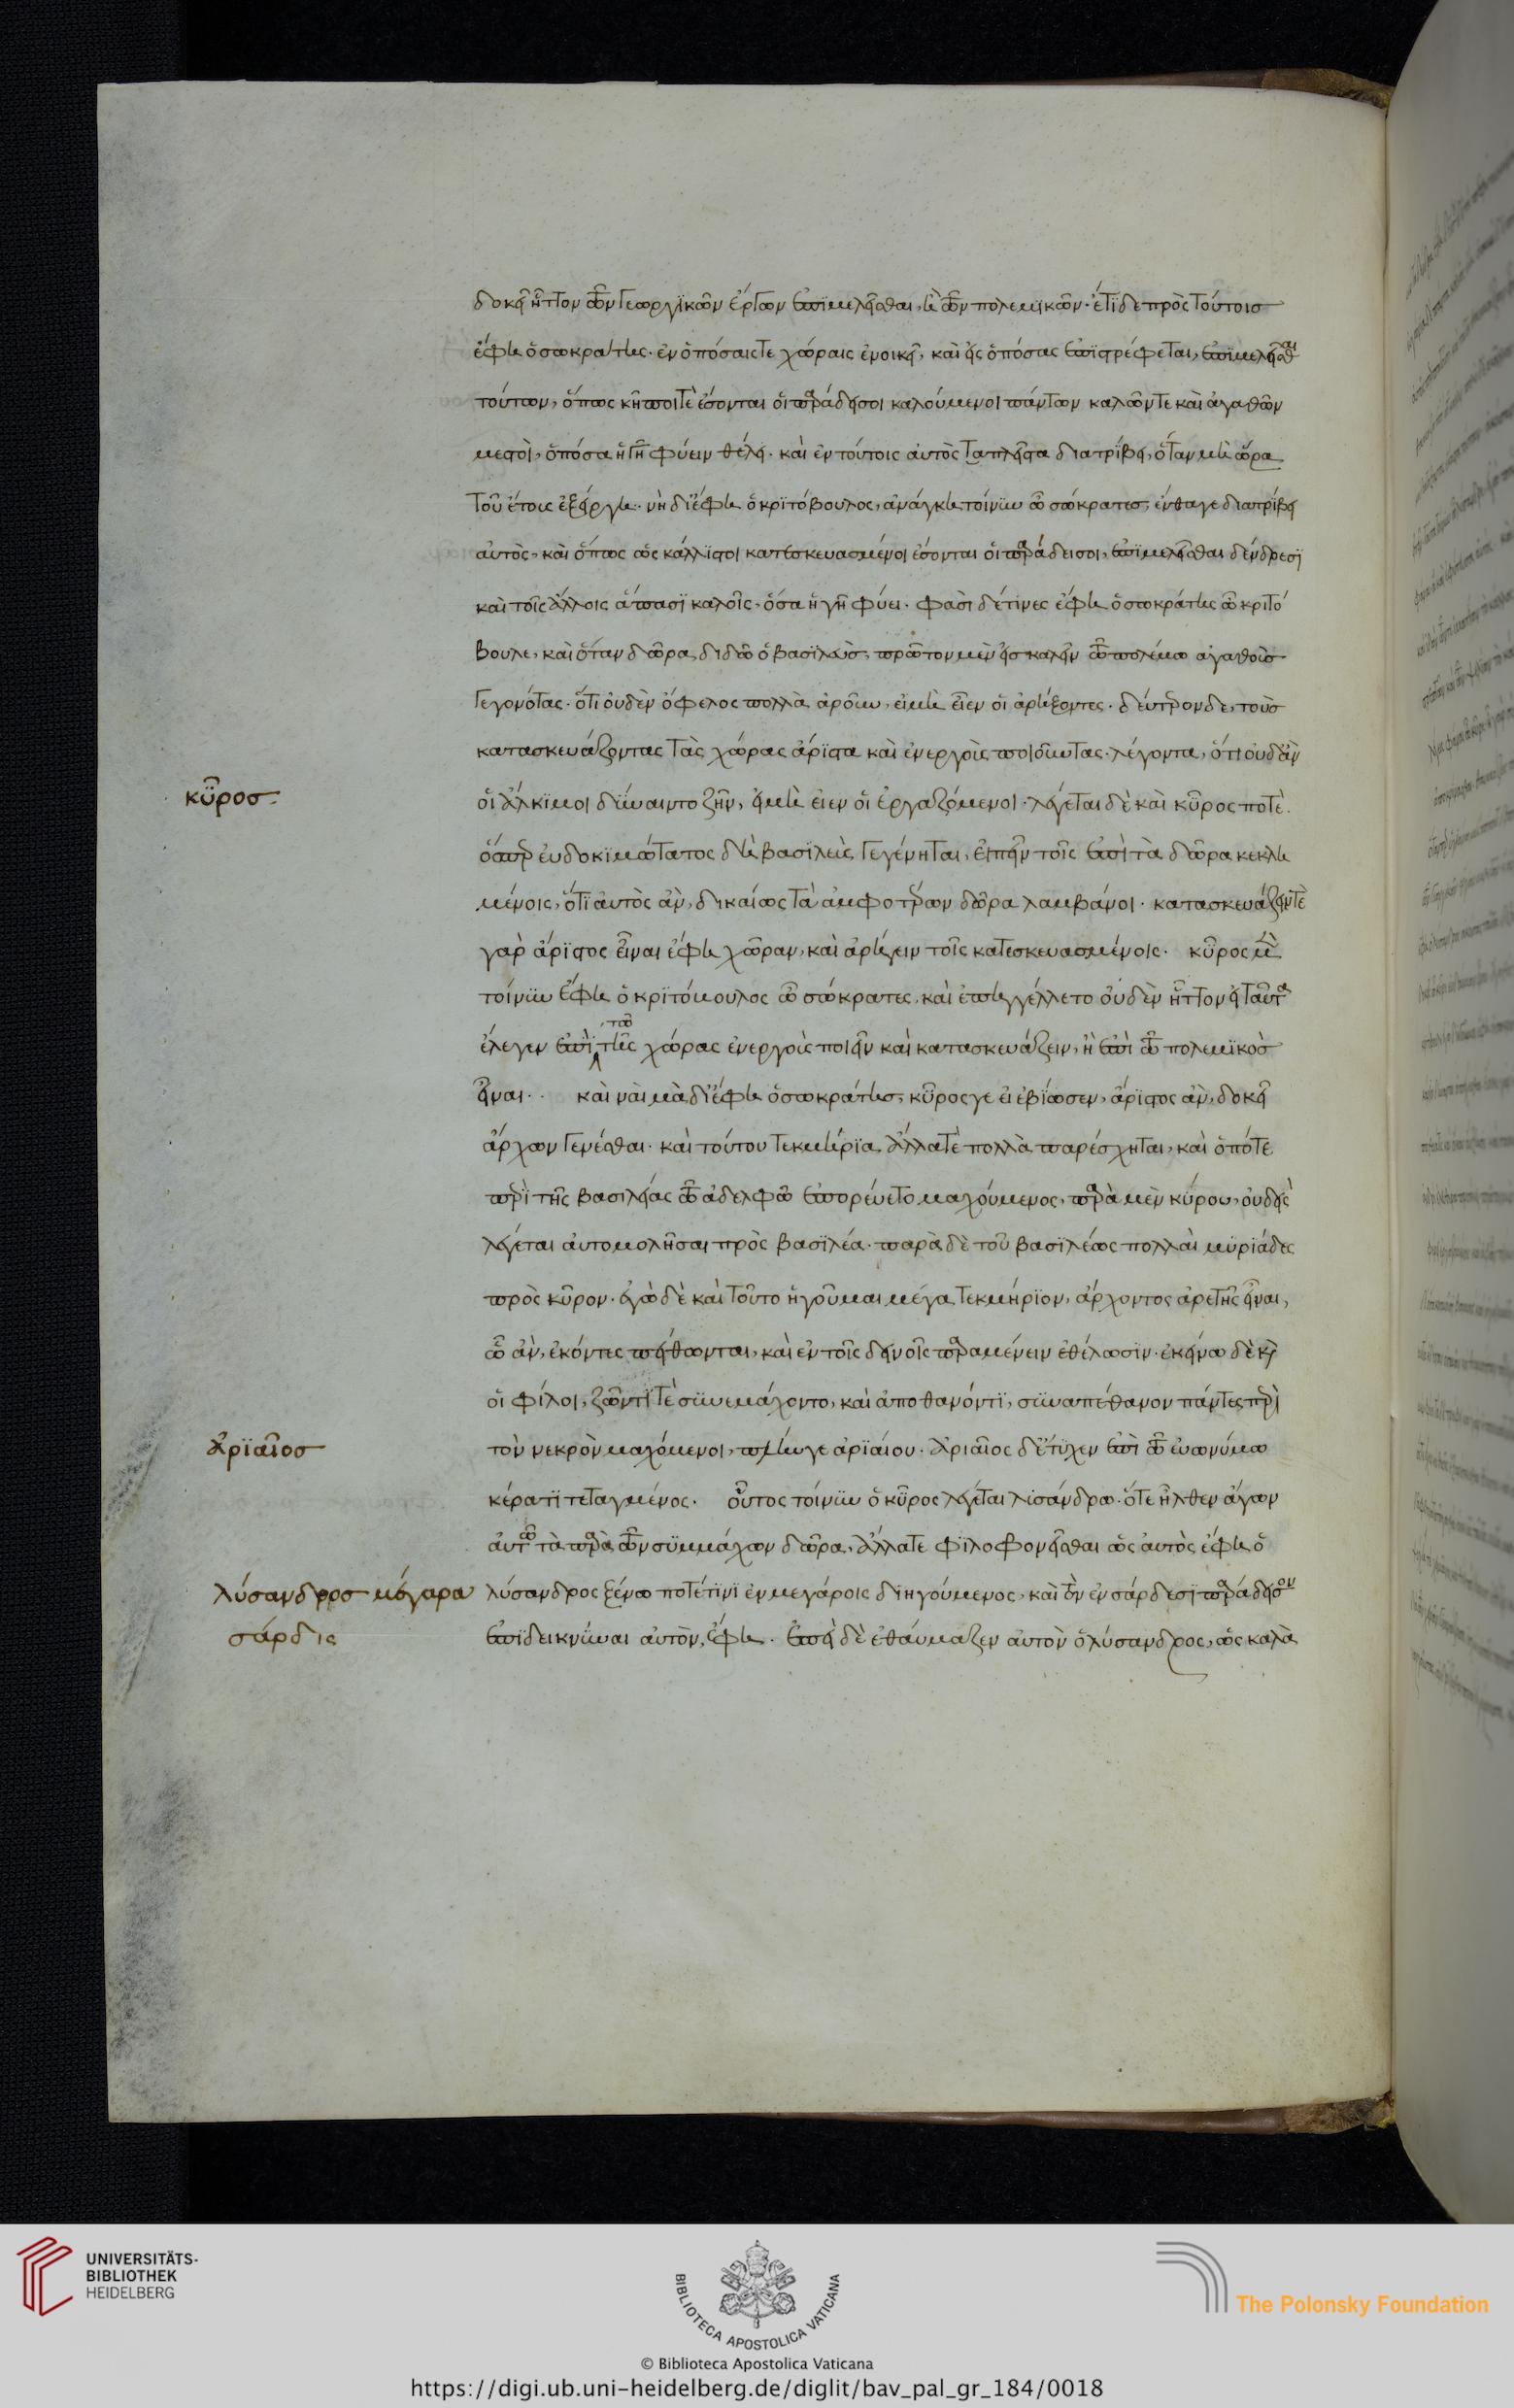 δοκεῖ ἧττον τῶν γεωργϊκῶν ἔργων ἐπϊμελεῖσθαι, ἢ τῶν πολεμϊκῶν· ἔτϊ δε πρὸς τούτοισ
ἔφη ὁ σωκράτης· ἐν ὁπόσαις τε χώραις ἐνοικεῖ, καὶ εἰς ὁπόσας ἐπϊστρέφεται, ἐπϊμελεῖσθαι
τούτων, ὅπως κῆποί τὲ ἔσονται οἱ παράδεισοι καλούμενοι πάντων καλῶν τε καὶ ἀγαθῶν
μεστοὶ, ὁπόσα ἡ γῆ φύειν θέλει· καὶ ἐν τούτοις αὐτὸς τα πλεῖστα διατρίβει, ὅταν μὴ ὥρα
τοῦ ἔτους ἐξείργη· νὴ δί' ἔφη ὁ κριτόβουλος, ἀνάγκη τοίνϋν ὦ σώκρατεσ, ἔνθα γε διατρίβει
αὐτὸς, καὶ ὅπως ὡς κάλλϊστοι κατεσκευασμένοι ἔσονται οἱ παράδεισοι, ἐπϊμελεῖσθαι δένδρεσϊ
καὶ τοῖς ἄλλοις ἅπασϊ καλοῖς· ὅσα ἡ γῆ φύει· φασὶ δέ τινες ἔφη ὁ σωκράτης ὦ κριτό
βουλε, καὶ ὅταν δῶρα διδῶ ὁ βασϊλεὺσ, πρῶτον μὲν εἰσκαλεῖν τῶ πολέμω ἀγαθοὺσ
γεγονότας· ὅτι οὐδὲν ὄφελος πολλὰ ἀροῦν, εἰ μὴ εἶεν οἱ ἀρήξοντες· δεύτερον δε, τοὺσ
κατασκευάζοντας τὰς χώρας ἄρϊστα καὶ ἐνεργοὺς ποιοῦντας· λέγοντα, ὅτι οὐδ' ἂν
κῦροσ
οἱ ἄλκϊμοι δϋναιντο ζῆν, εἰ μὴ εἶεν οἱ ἐργαζόμενοι· λέγεται δὲ καὶ κῦρος ποτὲ.
ὅσπερ εὐδοκϊμώτατος δὴ βασϊλεὺς γεγένηται, εἰπεῖν τοῖς ἐπὶ τὰ δῶρα κεκλη
μένοις, ὅτϊ αὐτὸς ἂν, δικαίως τὰ ἀμφοτέρων δῶρα λαμβάνοι· κατασκευάζειν τὲ
γαρ ἄρϊστος εἶναι ἔφη χώραν, καὶ ἀρήγειν τοῖς κατεσκευασμένοις· κῦρος μὲν
τοίνϋν ἔφη ὁ κρϊτόμουλος ὦ σώκρατες, καὶ ἐπηγγέλλετο οὐδὲν ἧττον εἰ ταῦτα
ἔλεγεν ἐπὶ τῶ τῆς χώρας ἐνεργοὺς ποιεῖν καὶ κατασκευάζειν, ἢ ἐπὶ τῶ πολεμϊκὸσ
εἶναι·· καὶ ναὶ μὰ δί' ἔφη ὁ σωκράτησ, κῦρος γε εἰ ἐβίωσεν, ἄρϊστος ἂν, δοκεῖ
ἄρχων γενέσθαι· καὶ τούτου τεκμήρϊα, ἄλλα τὲ πολλὰ παρέσχηται, καὶ ὁπότε
περὶ τῆς βασιλείας τῶ ἀδελφῶ ἐπορεύετο μαχούμενος, παρὰ μὲν κύρου, οὐδεὶς
λέγεται αὐτομολῆσαι πρὸς βασϊλέα· παρὰ δὲ τοῦ βασϊλέως πολλαὶ μϋρϊάδες
πρὸς κῦρον· ἐγὼ δὲ καὶ τοῦτο ἡγοῦμαι μέγα τεκμήρϊον, ἄρχοντος ἀρετῆς εἶναι,
ὧ ἂν, ἑκόντες πείθωνται, καὶ ἐν τοῖς δεινοῖς παραμένειν ἐθέλωσϊν· ἐκείνω δὲ καὶ
οἱ φίλοι, ζῶντϊ τὲ σϋνεμάχοντο, καὶ ἀποθανόντϊ, σϋναπέθανον πάντες περὶ
ἀρϊαῖοσ
τὸν νεκρὸν μαχόμενοι, πλήν γε ἀρϊαίου· ἀριαῖος δ' ἔτϋχεν ἐπὶ τῶ εὐωνύμω
κέρατϊ τεταγμένος· οὗτος τοίνϋν ὁ κῦρος λέγεται λϊσάνδρω· ὅτε ἦλθεν ἄγων
αὐτῶ τὰ παρὰ τῶν σϋμμάχων δῶρα, ἄλλα τε φϊλοφονεῖσθαι ὡς αὐτὸς ἔφη ὁ
λύσανδροσ μέγαρα
λύσανδρος ξένω ποτέ τϊνϊ ἐν μεγάροις διηγούμενος, καὶ τὸν ἐν σάρδεσϊ παράδεισον
σάρδις
ἐπϊδεικνϋναι αὐτὸν, ἔφη· ἐπεὶ δὲ ἐθαύμαζεν αὐτὸν ὁ λύσανδρος, ὡς καλὰ
UNIVERSITÄTS-
BIBLIOTHEK
HEIDELBERG
BIBLIOTECA APOSTOLICA VATICANA
The Polonsky Foundation
© Biblioteca Apostolica Vaticana
https://digi.ub.uni-heidelberg.de/diglit/bav_pal_gr_184/0018